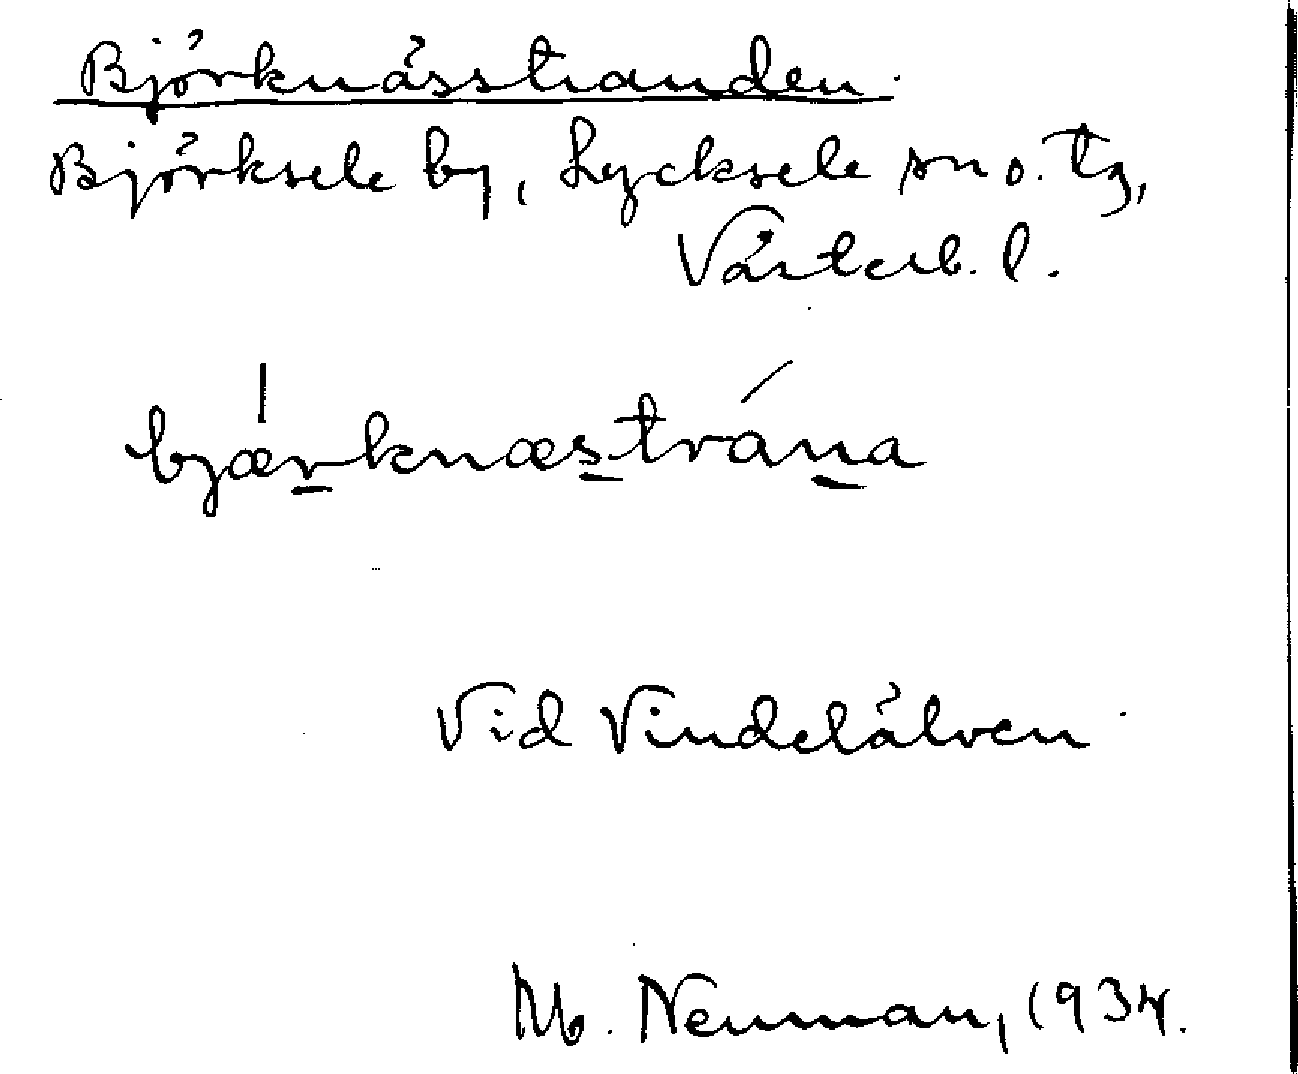 Björknässtranden.
Björksele by, Lycksele sn o. tg,
Västerb. l.
bjærknæstrána
Vid Vindelälven
M. Neuman, 1934.